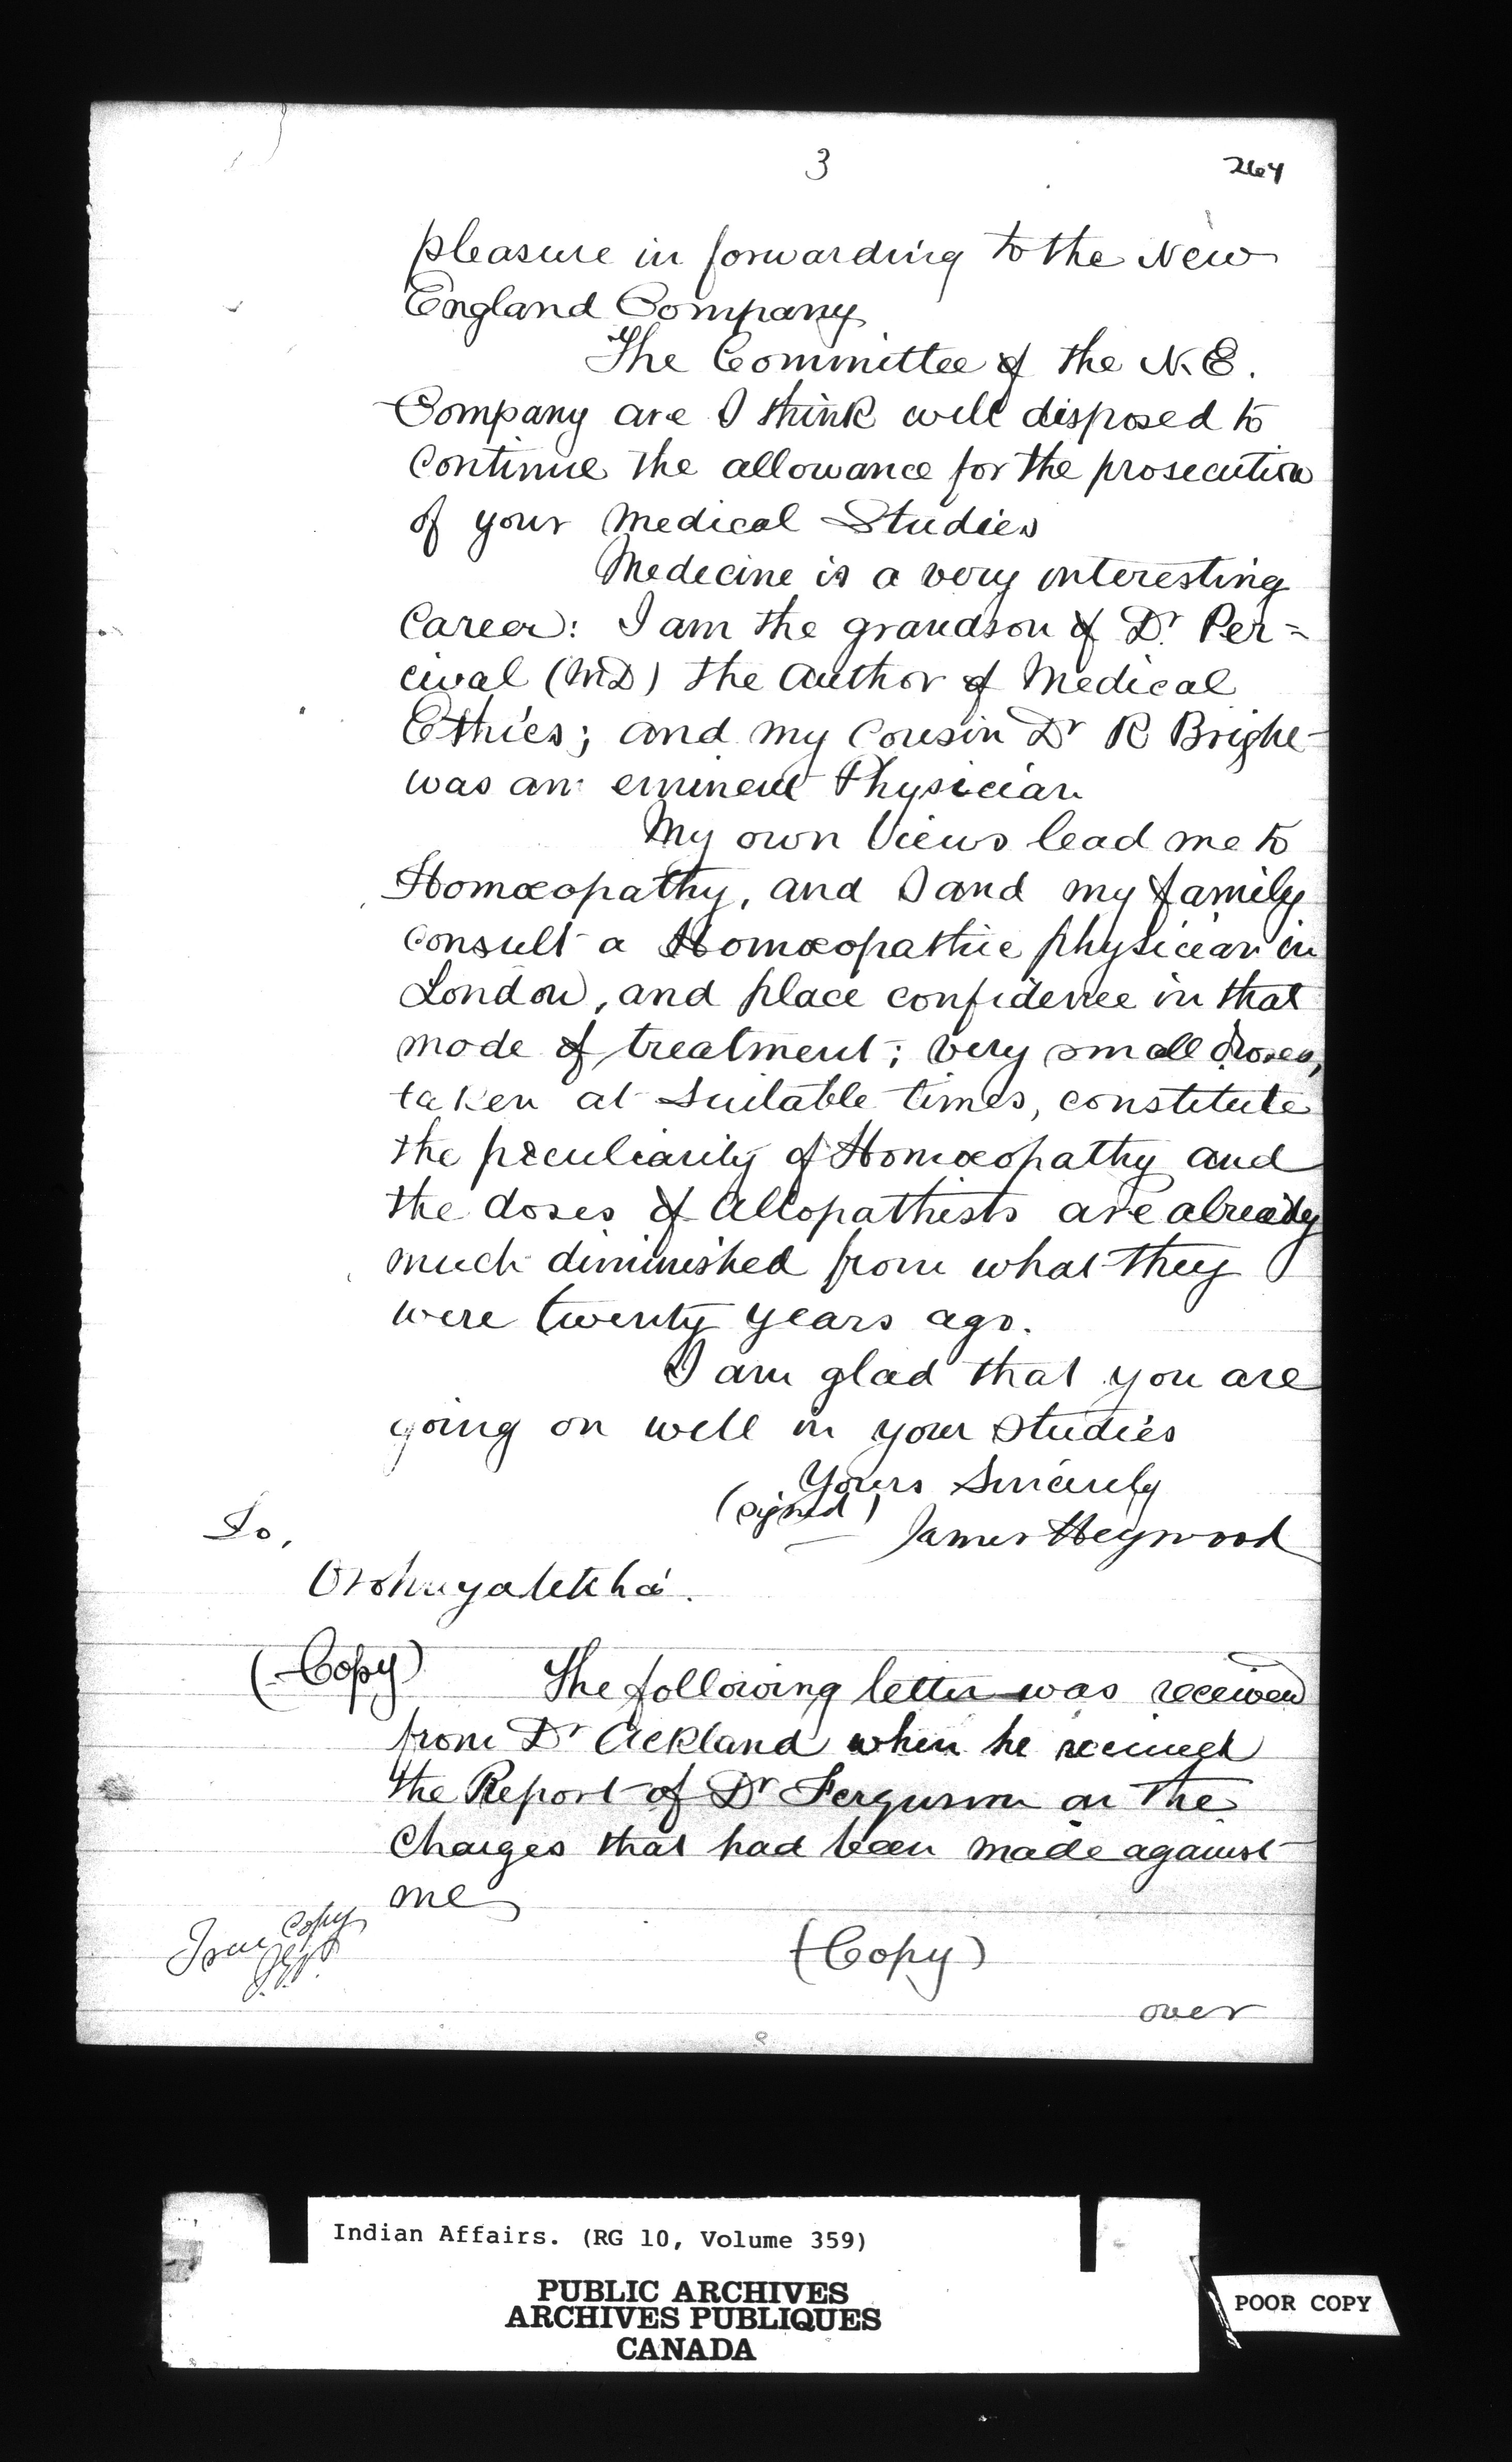 3
264
pleasure in forwarding to the New
England Company
The Committee of the N.E.
Company are I think well disposed to
continue the allowance for the prosecution
of your Medical Studies
Medicine is a very interesting
Career: I am the grandson of Dr Per=
cival (MD) the Author of Medical
Ethics; and my Cousin Dr R Bright
was an eminent Physician
My own Views lead me to
Homœopathy, and I and my family
consult a Homœopathic physician in
London, and place confidence in that
mode of treatment; very small doses,
taken at suitable times, constitute
the peculiarity of Homœopathy and
the doses of Allopathists are already
much diminished from what they
were twenty years ago.
I am glad that you are
going on well in your studies
Yours Sincerely
(signed)
James Heywood
To,
Oronhyatekha.
(Copy)
The following letter was received
from Dr Ackland when he received
the Report of Dr Ferguson on the
Charges that had been made against
me
True Copy
(Copy)
over
Indian Affairs. (RG 10, Volume 359)
PUBLIC ARCHIVES
ARCHIVES PUBLIQUES
CANADA
POOR COPY